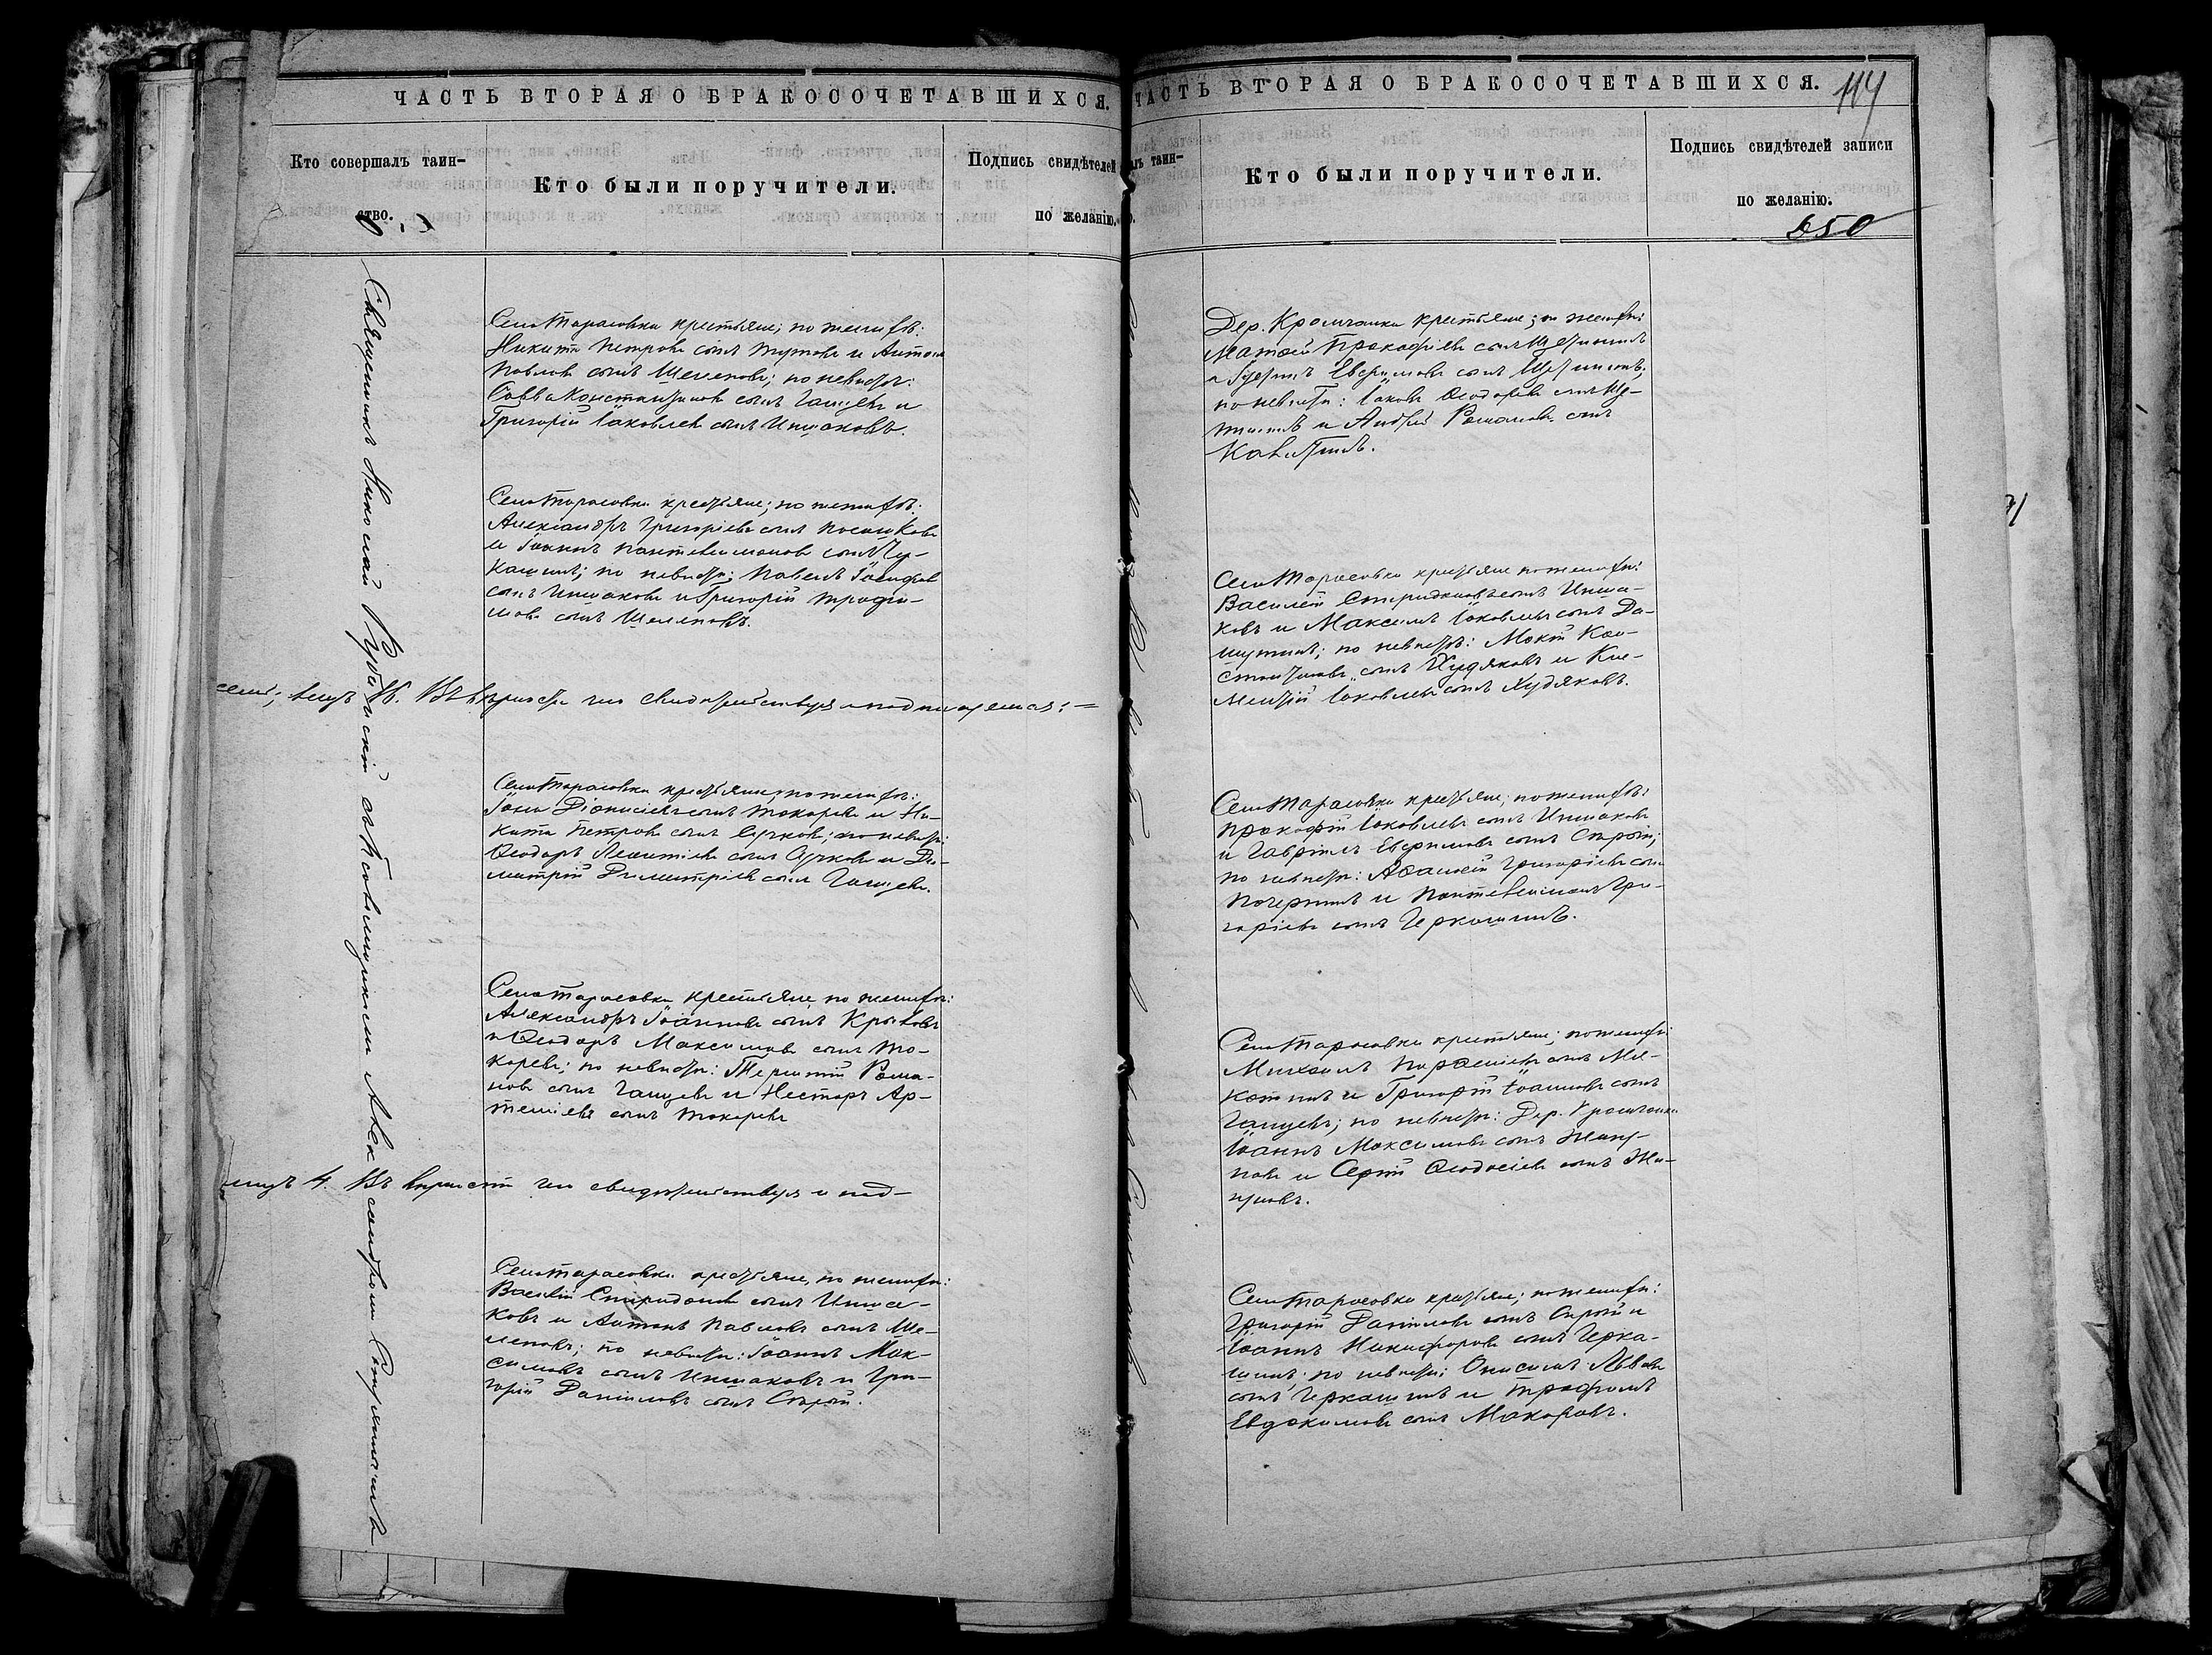 ЧАСТЬ ВТОРАЯ О БРАКОСОЧЕТАВШИХСЯ.
Кто совершалъ таин-
ство.
Кто были поручители.
Подпись свидѣтелей
по желанію.
Священникъ Николай съ псаломщикомъ Александромъ
Села Тарасовки крестьяне; по женихѣ:
Никита Петровъ сынъ и Антонъ
Павловъ сынъ Шелеповъ; по невѣстѣ:
Савва Константиновъ сынъ Ганцевъ и
Григорій Іаковлевъ сынъ Иншаковъ.
Села Тарасовки крестьяне; по женихѣ:
Александръ Григоріевъ сынъ Посашковъ
и Іоаннъ Пантелеимоновъ сынъ Чу-
кашинъ; по невѣстѣ: Павелъ Іосифовъ
сынъ Иншаковъ и Григорій Трофи-
мовъ сынъ Шелеповъ.
16. Въ вѣрности сего свидѣтельствуя подписуемся: =
Села Тарасовки крестьяне; по женихѣ:
Іона Діонисіевъ сынъ Токаревъ и Ни-
кита Петровъ сынъ Сучковъ; по невѣстѣ:
Ѳеодоръ Леонтіевъ сынъ Сучковъ и Ди-
митрій Димитріевъ сынъ Ганцевъ.
Села Тарасовки крестьяне, по женихѣ:
Александръ Іоанновъ сынъ Крюковъ
и Ѳеодоръ Максимовъ сынъ То-
каревъ; по невѣстѣ: Терентій Рома-
новъ сынъ Ганцевъ и Несторъ Ар-
темьевъ сынъ Токаревъ
4. Въ вѣрности сего свидѣтельствуя и под-
Села Тарасовки крестьяне, по женихѣ:
Василій Спиридоновъ сынъ Инша-
ковъ и Антонъ Павловъ сынъ Ше-
леповъ; по невѣстѣ: Іоаннъ Мак-
симовъ сынъ Иншаковъ и Гри-
горій Даніиловъ сынъ Сѣрый.
ЧАСТЬ ВТОРАЯ О БРАКОСОЧЕТАВШИХСЯ.
114
таин-
Кто были поручители.
Подпись свидѣтелей записи
по желанію.
650
Дер. крестьяне; по женихѣ:
Матѳей Прокофіевъ сынъ
и Евфимовъ сынъ
по невѣстѣ: Іаковъ Ѳеодоровъ сынъ Ще-
и Андрей Романовъ сынъ
Села Тарасовки крестьяне по женихѣ:
Василій Спиридоновъ сынъ Инша-
ковъ и Максимъ Іаковлевъ сынъ До-
мутинъ; по невѣстѣ: Мокій Кон-
стантиновъ сынъ Худяковъ и Кли-
ментій Іаковлевъ сынъ Худяковъ.
Села Тарасовки крестьяне; по женихѣ:
Прокофій Іаковлевъ сынъ Иншаковъ
и Гавріилъ Евфимовъ сынъ Сѣрый;
по невѣстѣ: Аѳанасій Григоріевъ сынъ
и Пантелеимонъ Гри-
горіевъ сынъ Черкашинъ.
Села Тарасовки крестьяне; по женихѣ:
Михаилъ сынъ Мя-
котинъ и Григорій Іоанновъ сынъ
Ганцевъ; по невѣстѣ: Дер.
Іоаннъ Максимовъ сынъ
и Сергій Ѳеодосіевъ сынъ
Села Тарасовки крестьяне; по женихѣ:
Григорій Даніиловъ сынъ Сѣрый и
Іоаннъ Никифоровъ сынъ Черка-
шинъ; по невѣстѣ: Онисимъ Львовъ
сынъ Черкашинъ и Трофимъ
Евдокимовъ сынъ Макаровъ.